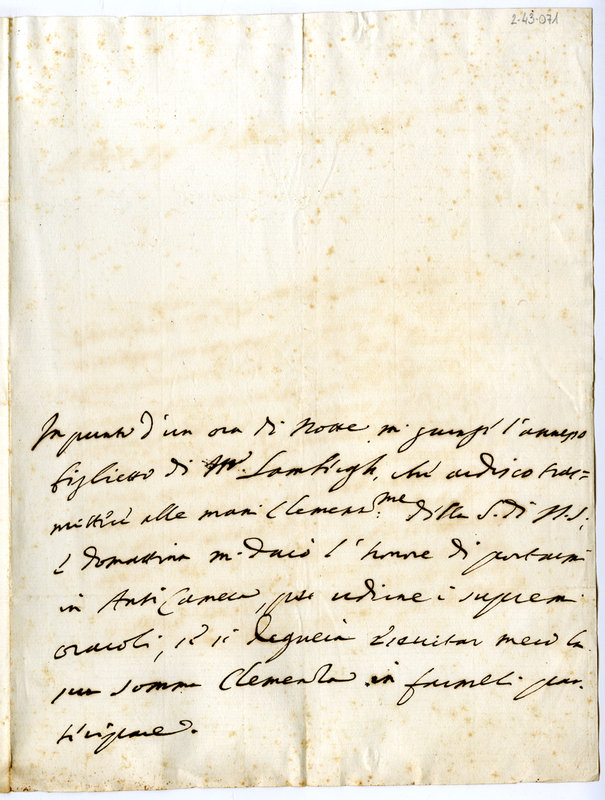 2-43-071
In punto d'un ora di Notte mi giunge l'annesso
figlietto di Mr. Lambergh, che ardisco tras=
mettere alle mani Clement:me della S. di N. S.,
e domattina mi darò l'honore di portarmi
in AntiCamera, per udirne i supremi
oracoli, se si degnerà esercitar meco la
sua somma Clemenza in farmeli par-
tecipare.